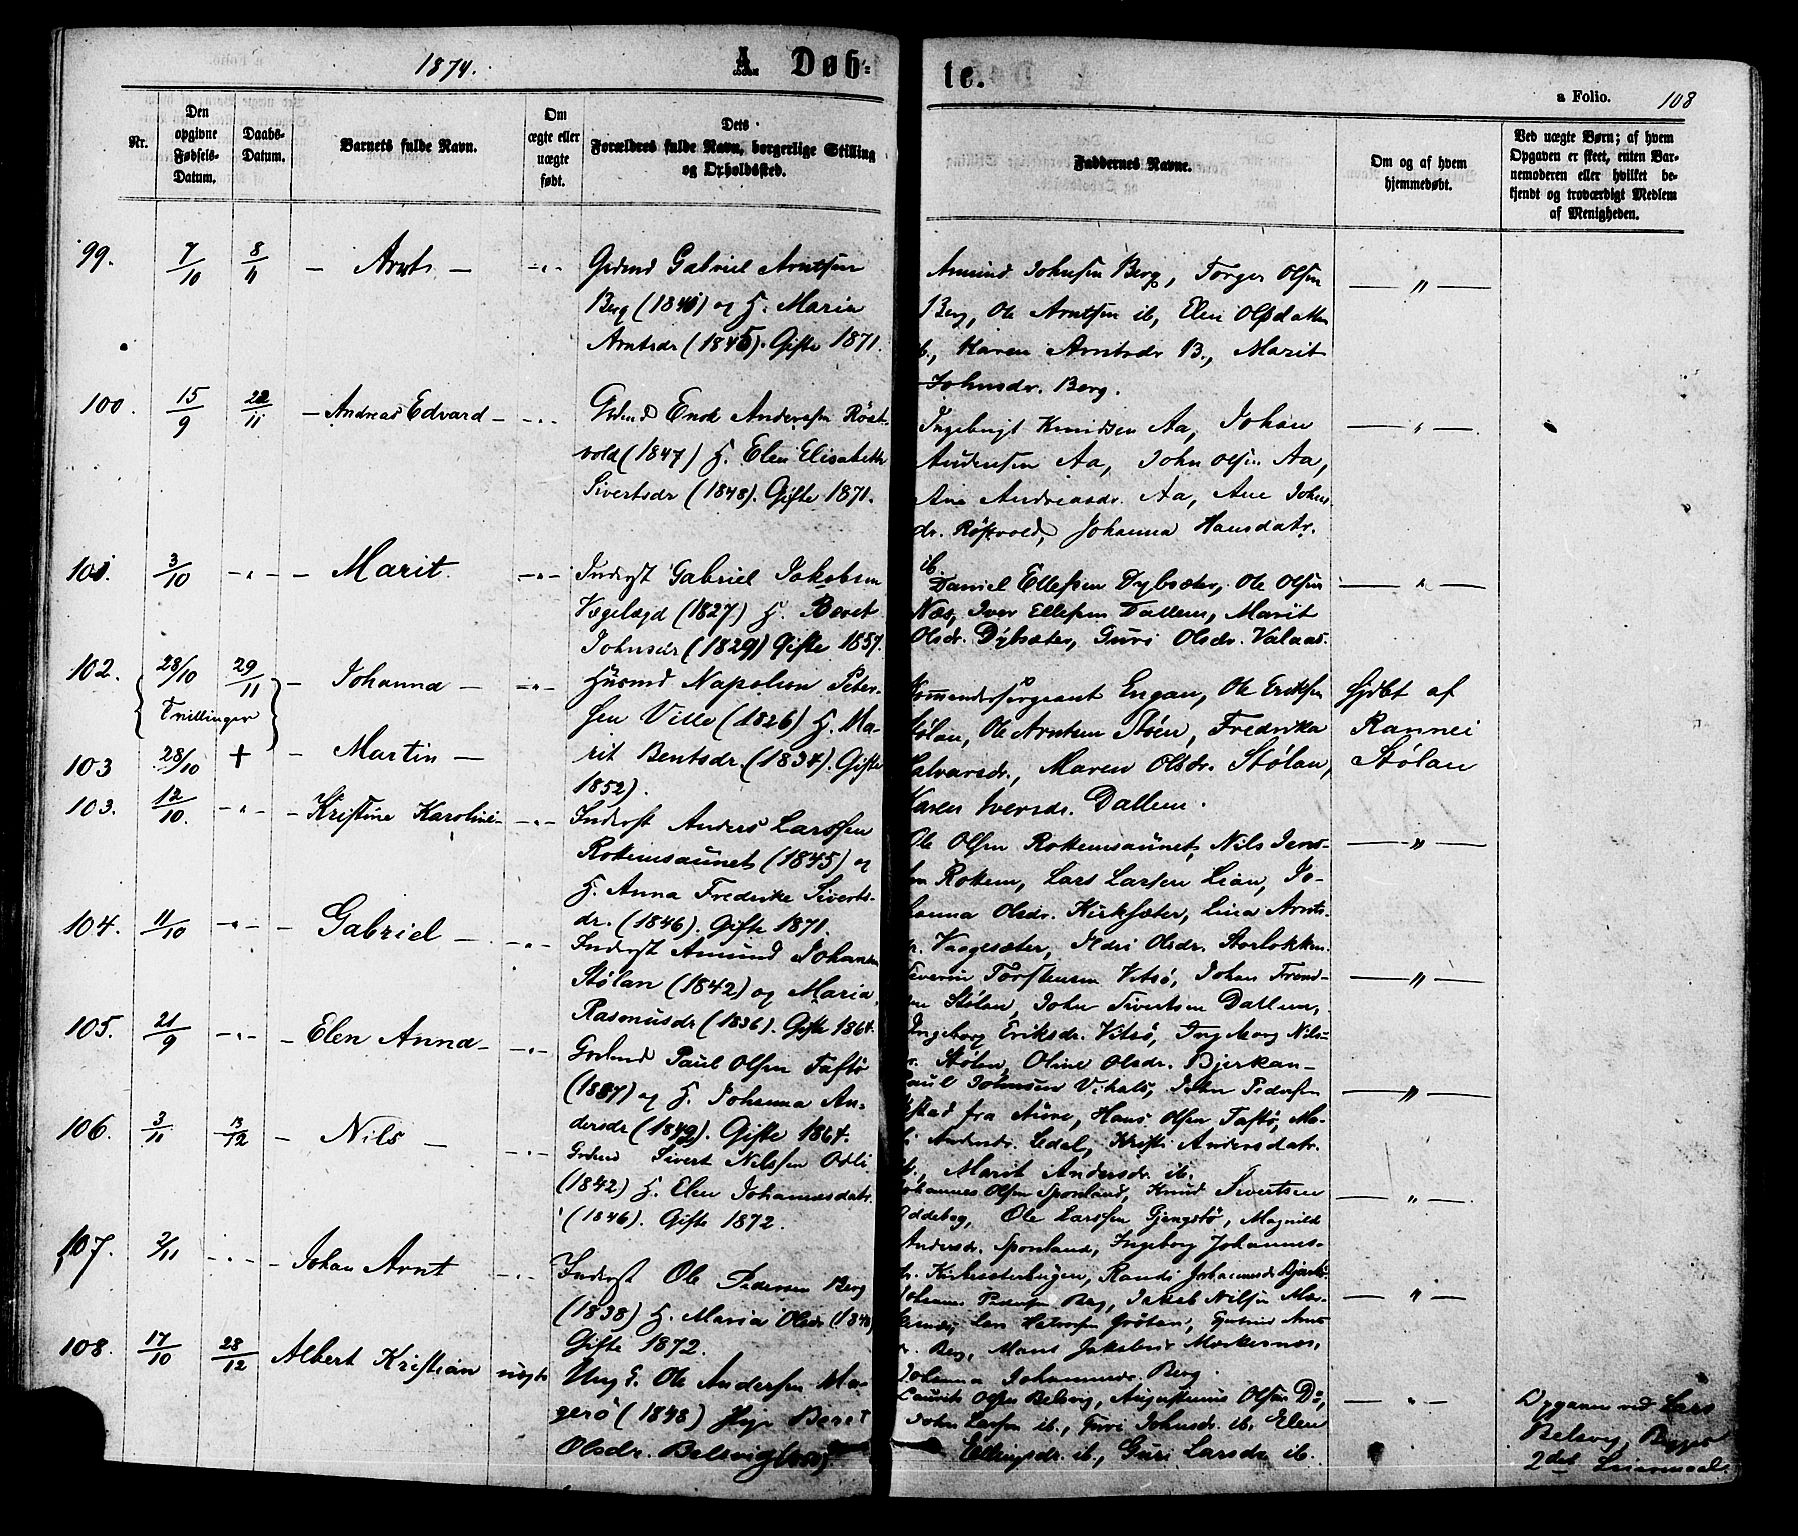 1874.
A. Døb-
te.
a Folio. 108
Nr.
Den opgivne Fødsels-Datum.
Daabs-Datum.
Barnets fulde Navn.
Om ægte eller uægte født.
Dets Forældres fulde Navn, borgerlige Stilling og Opholdssted.
Faddernes Navne.
Om og af hvem hjemmedøbt.
Ved uægte Børn; af hvem Opgaven er skeet, enten Barnemoderen eller hvilket bekjendt og troværdigt Medlem af Menigheden.
99. 7/10 8/11 – Arnt –
Gabriel Arntsen
Berg (1840) og H. Maria
Arntsdr (1845). Gifte 1871.
Amund Johnsen Berg, Torger Olsen
Berg, Ole Arntsen ib, Elen Olsdatter
ib, Karen Arntsdr B., Marit
Johnsdr. Berg.
100. 15/9 22/11 – Andreas Edvard –
Enok Andersen Røst-
vold (1847) H. Elen Elisabeth
Sivertsdr (1848). Gifte 1871.
Ingebrigt Knudsen Aa, Johan
Andersen Aa, John Olsen Aa,
Ane Andreasdr. Aa, Ane Johns
dr. Røstvold, Johanna Hansdatr.
ib.
101. 3/10 – " – Marit.
Inderst Gabriel Jakobsen
Vægelægd (1827) H. Beret
Johnsdr (1829) Gifte 1857.
Daniel Ellefsen Dybsæter, Ole Olsen
Næs, Iver Ellefsen Dallem, Marit
Olsdr. Dybsæter, Guri Olsdr. Valaas.
102. 28/10 29/11 – Johanna –
Trillinger
103 28/10 + – Martin –
Husmd Napoleon Peter-
sen Ville (1826) H. Ma-
rit Bentsdr. (1834). Gifte
1852).
Kommandersergeant Engan, Ole Eriksen
Stølan, Ole Arntsen Støen, Fredrika
Halvarsdr., Maren Olsdr. Stølan,
Karen Iversdr. Dallem.
Hjdbt af
Rannei
Stølan
103. 12/10. – " – Kristine Karoline –
Inderst Anders Larssen
Rokemsaunet (1845) og
H. Anna Fredrike Siverts-
dr. (1846). Gifte 1871.
Ole Olsen Rokemsaunet, Nils Jens-
sen Rokem, Lars Larsen Lian, Jo-
hanna Olsdr. Kirksæter, Lina Arnts-
dr. Vaagesæter, Ildri Olsdr. Storløkken.
104. 11/10 – " – Gabriel –
Inderst Amund Johansen
Stølan (1842) og Maria
Rasmusdr (1836). Gifte 1864.
Severin Torstensen Vitsø, Johan Trond-
sen Stølan, John Sivertsen Dallem,
Ingeborg Eriksdr. Vitsø, Ingeborg Nils-
dr. Stølan, Oline Olsdr. Bjerkan –
105. 21/9 – " – Elen Anna –
Paul Olsen Taftø
(1837) og H. Johanna An-
dersdr (1842). Gifte 1864.
Paul Johnsen Vihals, John Pedersen
fra Aure, Hans Olsen Taftø, Ma-
Andersdr. Ledal, Kristi Andersdatr.
ib., Marit Andersdr. ib.
106. 3/11 13/12 – Nils –
Sivert Nilssen Odli
(1842) H. Elen Johannesdatr.
(1846). Gifte 1872.
Johannes Olsen Sponland, Knud Sivertsen
Oddebog, Ole Larssen Gjengstø, Magnild
Andersdr. Sponland, Ingeborg Johannes-
dr. Kirksæterbugen, Randi Johannesdr
107. 2/11 – Johan Arnt
Inderst Ole Pedersen Berg
(1838) H. Maria Olsdr. (1840)
Gifte 1872.
Johannes Pedersen Berg, Jakob Nilsen
Lars Grøtan,
Berg, Jakobsdr
Johanna Johannesdr. Berg.
108. 17/10 28/12 Albert Kristian uægte
Ung. G. Ole Andersen Ma-
gerø (1848) Beret
Olsdr. Belsvig
Laurits Olsen Belsvig, Augustinus Olsen Do,
John Larsen ib., Guri Johnsdr. ib. Elen
Ellingsdr. ib., Guri Larsdr ib.
Opgaven ved Lars
Belsvig,
2det Leiermaal.